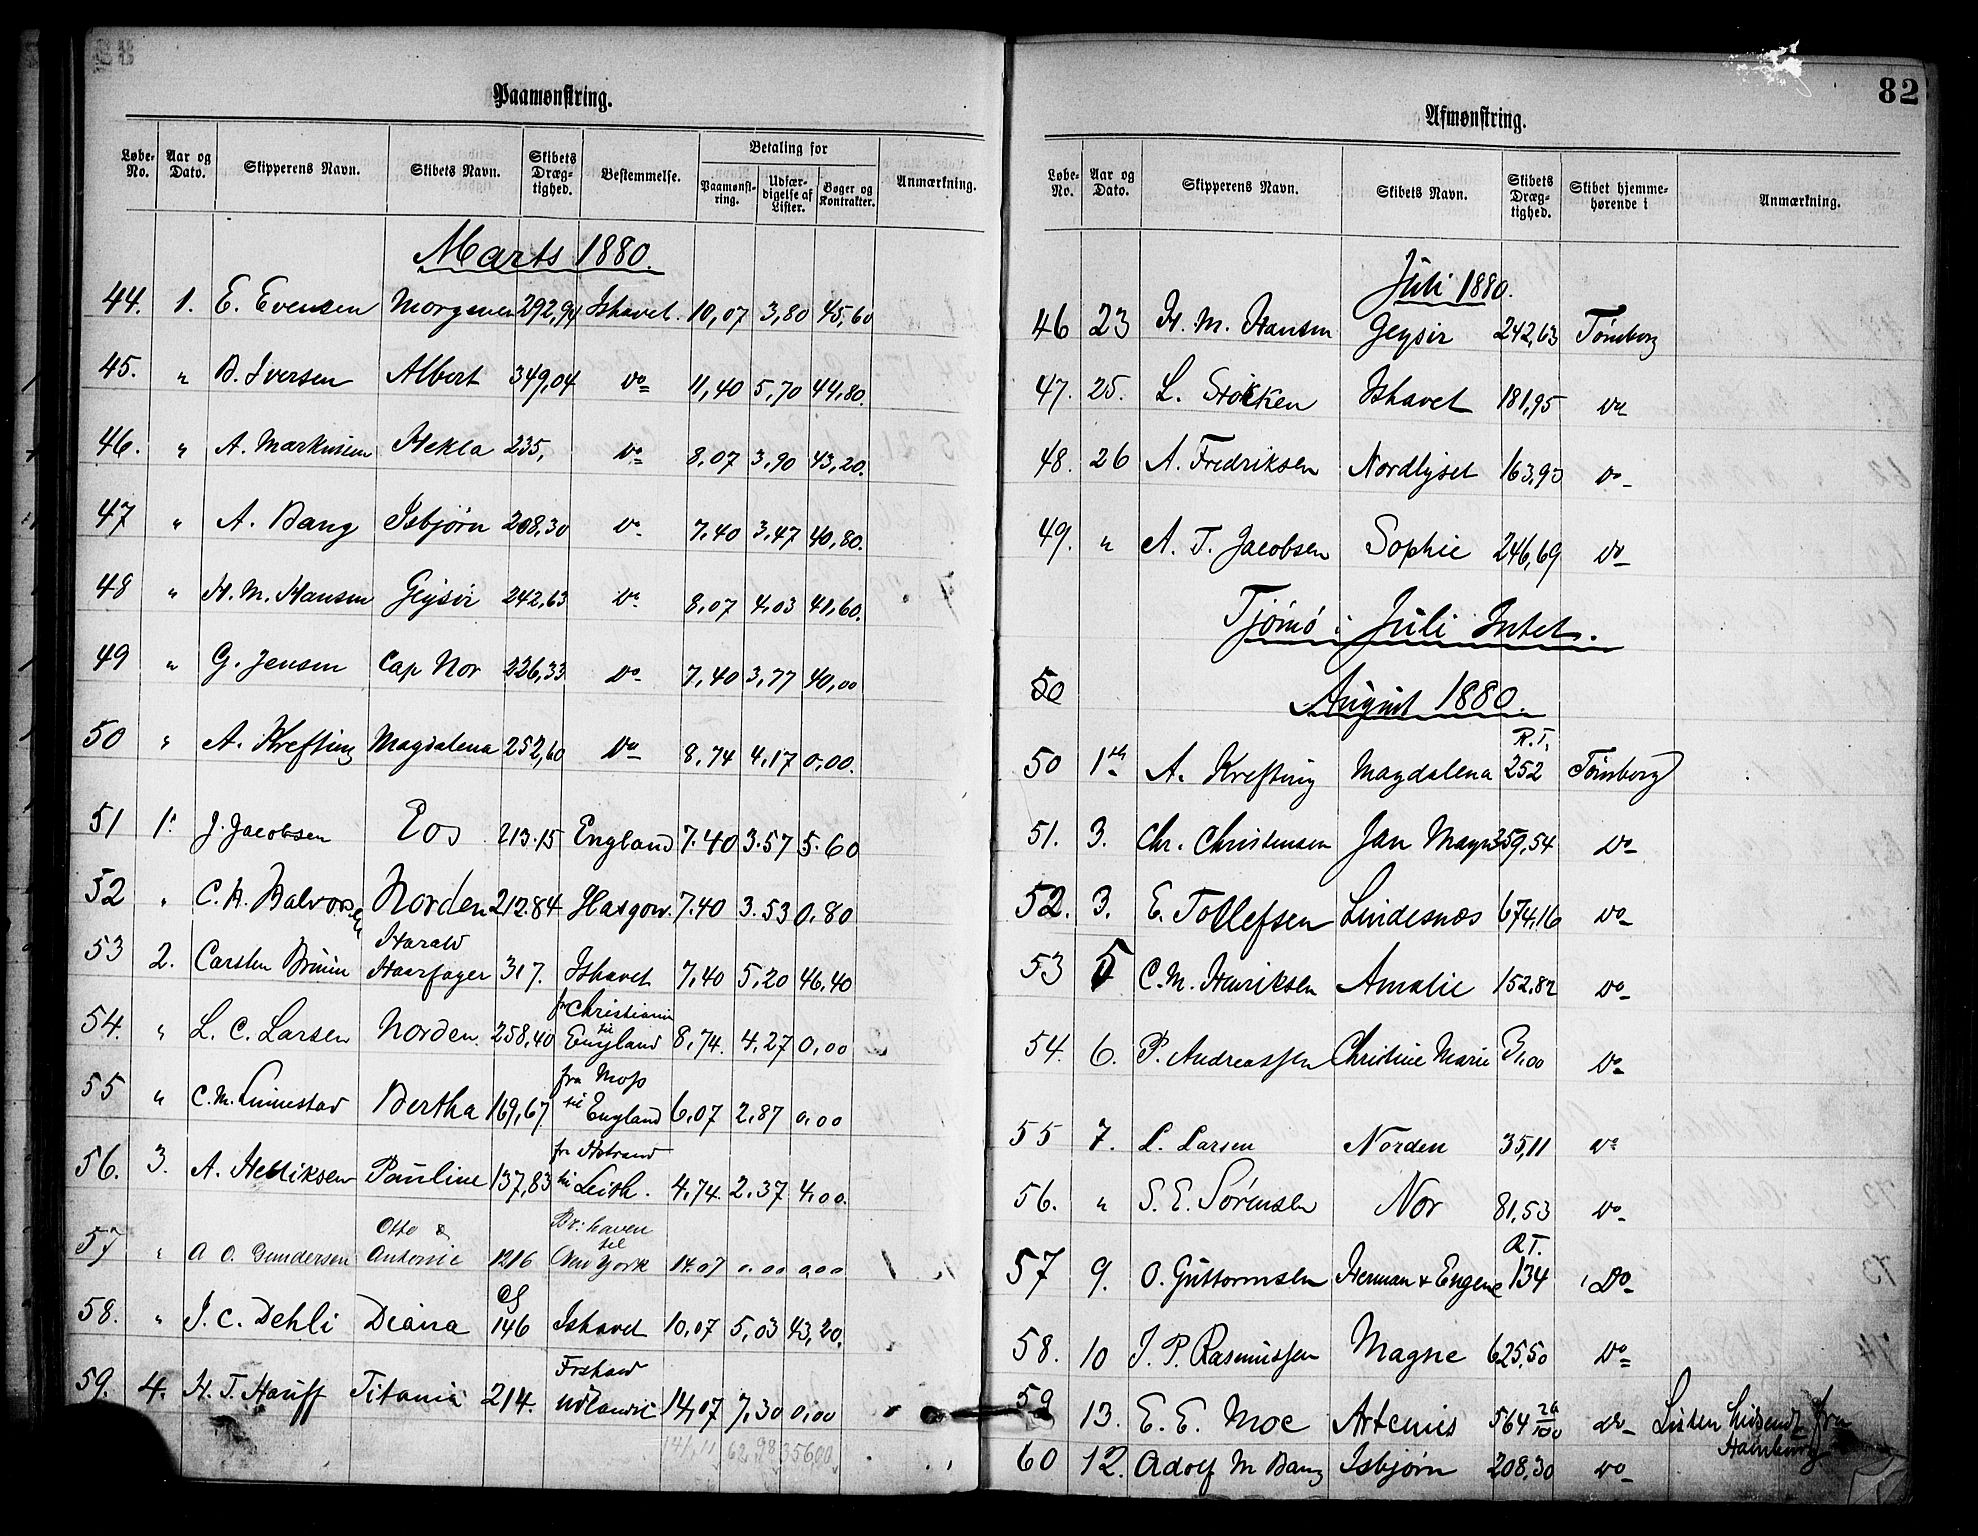 Paamønstring.
Løbe-No. Aar og Dato. Skipperens Navn. Skibets Navn. Skibets Dræg-tighed. Bestemmelse. Betaling for Paamønst-ring. Udfær-digelse af Lister. Bøger og Kontrakter. Anmærkning.
Marts 1880.
44. 1. E. Evensen Morgenen 292,94 Ishavet. 10,07 3,80 45,60
45. " B. Iversen Albert 349,04 Do 11,40 5,70 44,80.
46. " A. Markussen Hekla 235, Do 8,07 3,90 43,20.
47 " A. Bang Isbjørn 208,30 Do 7,40 3,47 40,80.
48 " H. M. Hansen Geysir 242,63 Do 8,07 4,03 41,60.
49 " G. Jensen Cap Nor 226,33 Do 7,40 3,77 40,00
50 " A. Krefting Magdalena 252,60 Do 8,74 4,17 0,00.
51 1. J. Jacobsen Eos 213.15 England 7.40 3.57 5.60
52 " C. A. Halvorsen Norden 212.84 Glasgow. 7.40 3.53 0.80
53 2. Carsten Bruun Harald Haarfager 317. Ishavet 7,40 5,20 46,40
54. " L. C. Larsen Norden. 258,40 fr Christiania til England 8,74. 4,27 0,00
55 " C. M. Linnestad Bertha 169,67 fra Moss til England 6,07 2,87 0,00
56. 3. A. Henriksen Pauline 137,83 fr Holmestrand til Leith. 4,74. 2,37 4,00.
57 " A O. Gundersen Otto & Antonie 1216 Br: haven til New York 14.07 0.00 0,00
58. " J. C. Dehli Diana 146 Ishavet 10,07 5,03 43,20.
59. 4. H. T. Hauff Titania 214. Frkstad Udlandet 14,07 7,30 0,00
62,98 356,00
82
Afmønstring.
Løbe-No. Aar og Dato. Skipperens Navn. Skibets Navn. Skibets Dræg-tighed. Skibet hjemme-hørende i Anmærkning.
Juli 1880.
46 23 H. M. Hansen Geysir 242,63 Tønsberg
47. 25. L. Stokken Ishavet 181,95 Do
48. 26 A. Fredriksen Nordlyset 163,93 Do
49. " A. T. Jacobsen Sophie 246,69 Do
Tjømø i Juli Intet.
50
August 1880.
50 1ste A. Krefting Magdalena R.T. 252 Tønsberg
51. 3. Chr. Christensen Jan Mayn 359,54 Do
52. 3. E. Tollefsen Lindesnæs 674,16 Do
53 5 C. M. Henriksen Amalie 152,82 Do
54. 6. P. Andreassen Christine Marie 31,00 Do
55 7. L. Larsen Norden 35,11 Do
56. " S. E. Sørensen Nor 81,53 Do
57 9. O. Guttormsen Herman & Eugene R.T. 134 Do
58. 10 J. P. Rasmussen Magne 625,50 Do
59 13. E. E. Moe Artemis 564 26/100 Do Listen indsendt fra Hamburg
60 12. Adolf M Bang Isbjørn 208,30 Do